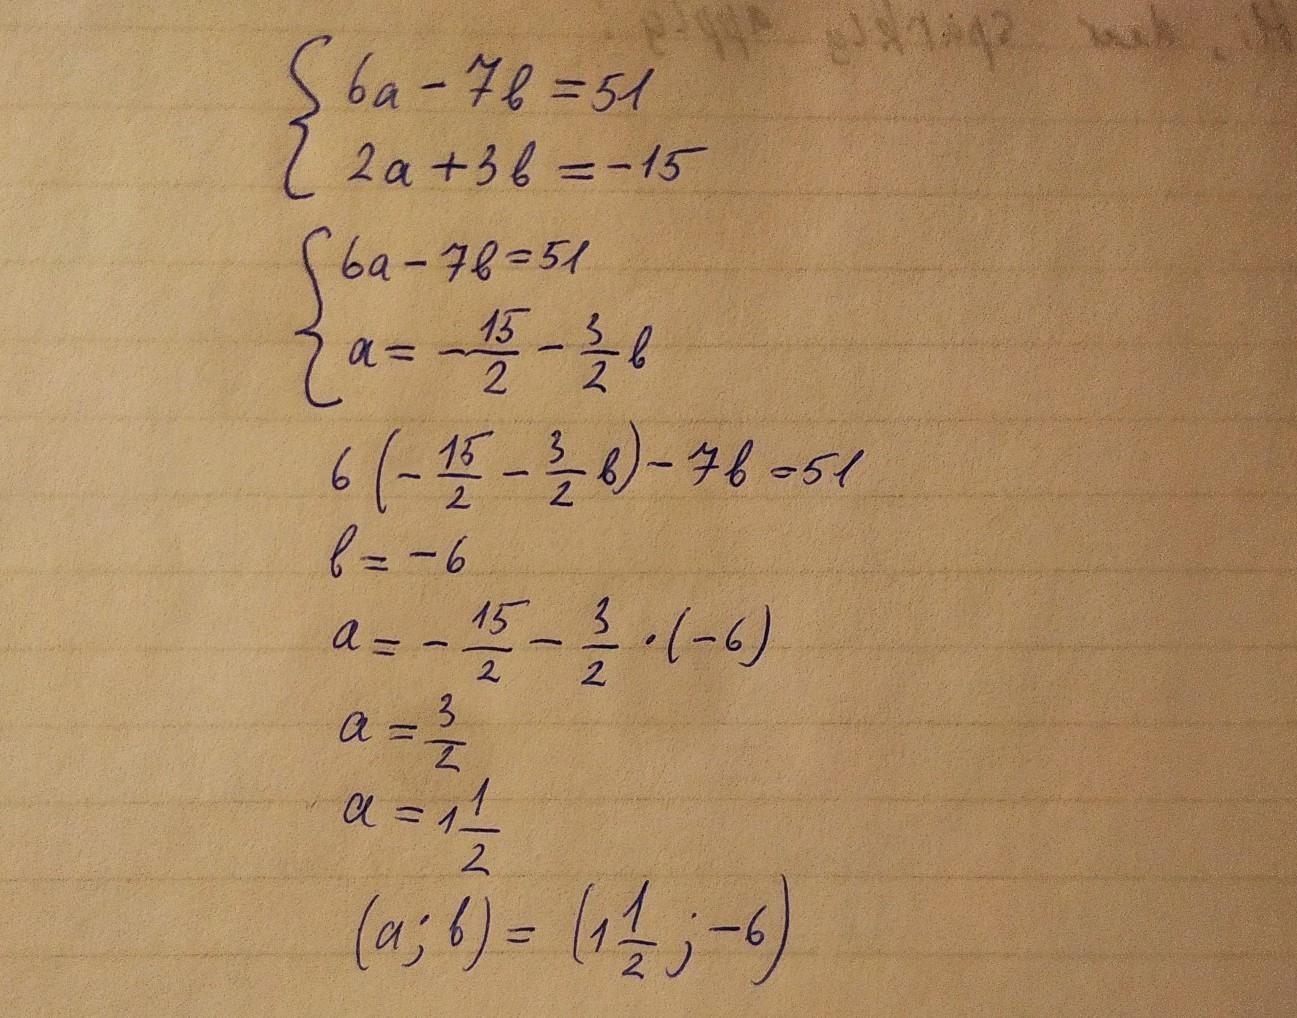 6a - 7b = 51
2a + 3b = -15
6a - 7b = 51
a = -15/2 - 3/2 b
6(-15/2 - 3/2 b) - 7b = 51
b = -6
a = -15/2 - 3/2 · (-6)
a = 3/2
a = 1 1/2
(a; b) = (1 1/2; -6)